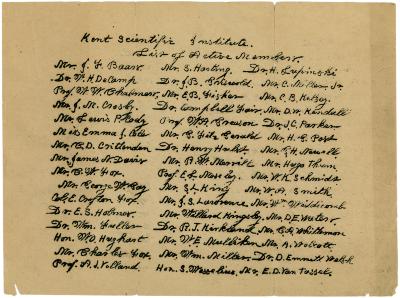 Kent Scientific Institute.
List of Active Members.
Mr. J. F. Baars Mr. S. Hosting. Dr. H. Lupinski
Dr. W. H. DeCamp Dr. J. B. Griswold Mr. C. Miller Jr.
Prof. W. W. Chalmers Mr. E. B. Fisher Mr. C. B. Kelsey.
Mr. J. M. Crosby. Dr. Campbell Fair, Mr. D. W. Kendall
Mr. Lewis P. Eddy Prof. W. A. Greeson Dr. J. C. Parker
Miss Emma J. Cole Mr. C. Fitz Gerald Mr. H. C. Post
Mr. C. D. Crittenden Dr. Henry Hulst Mr.
Mr. James N. Davis Mr. B. W. Merrill Mr. Hugo Thum
Mr. C. W. Fox. Prof. E. L. Moseley. Mr. W. K. Schmidt
Mr. George W. Gay Mr. S. L. King Mr. W. A. Smith
Col. E. Crofton Fox. Mr. J. S. Lawrence Mr. Wm. Widdicomb
Dr. E. S. Holmes. Mr. Willard Kingsley. Mr. D. E. Waters
Dr. Wm. Fuller Dr. R. J. Kirkland Mr. C. B. Whitman
Hon. W. D. Mr. W. E. Mulliken Mr. A. Wolcott
Mr. Charles Fox Mr. Wm. Miller Dr. D. Emmett Welsh
Prof. A. J. Volland. Hon. S. Wesselius, Mr. E. D. Van Tassel